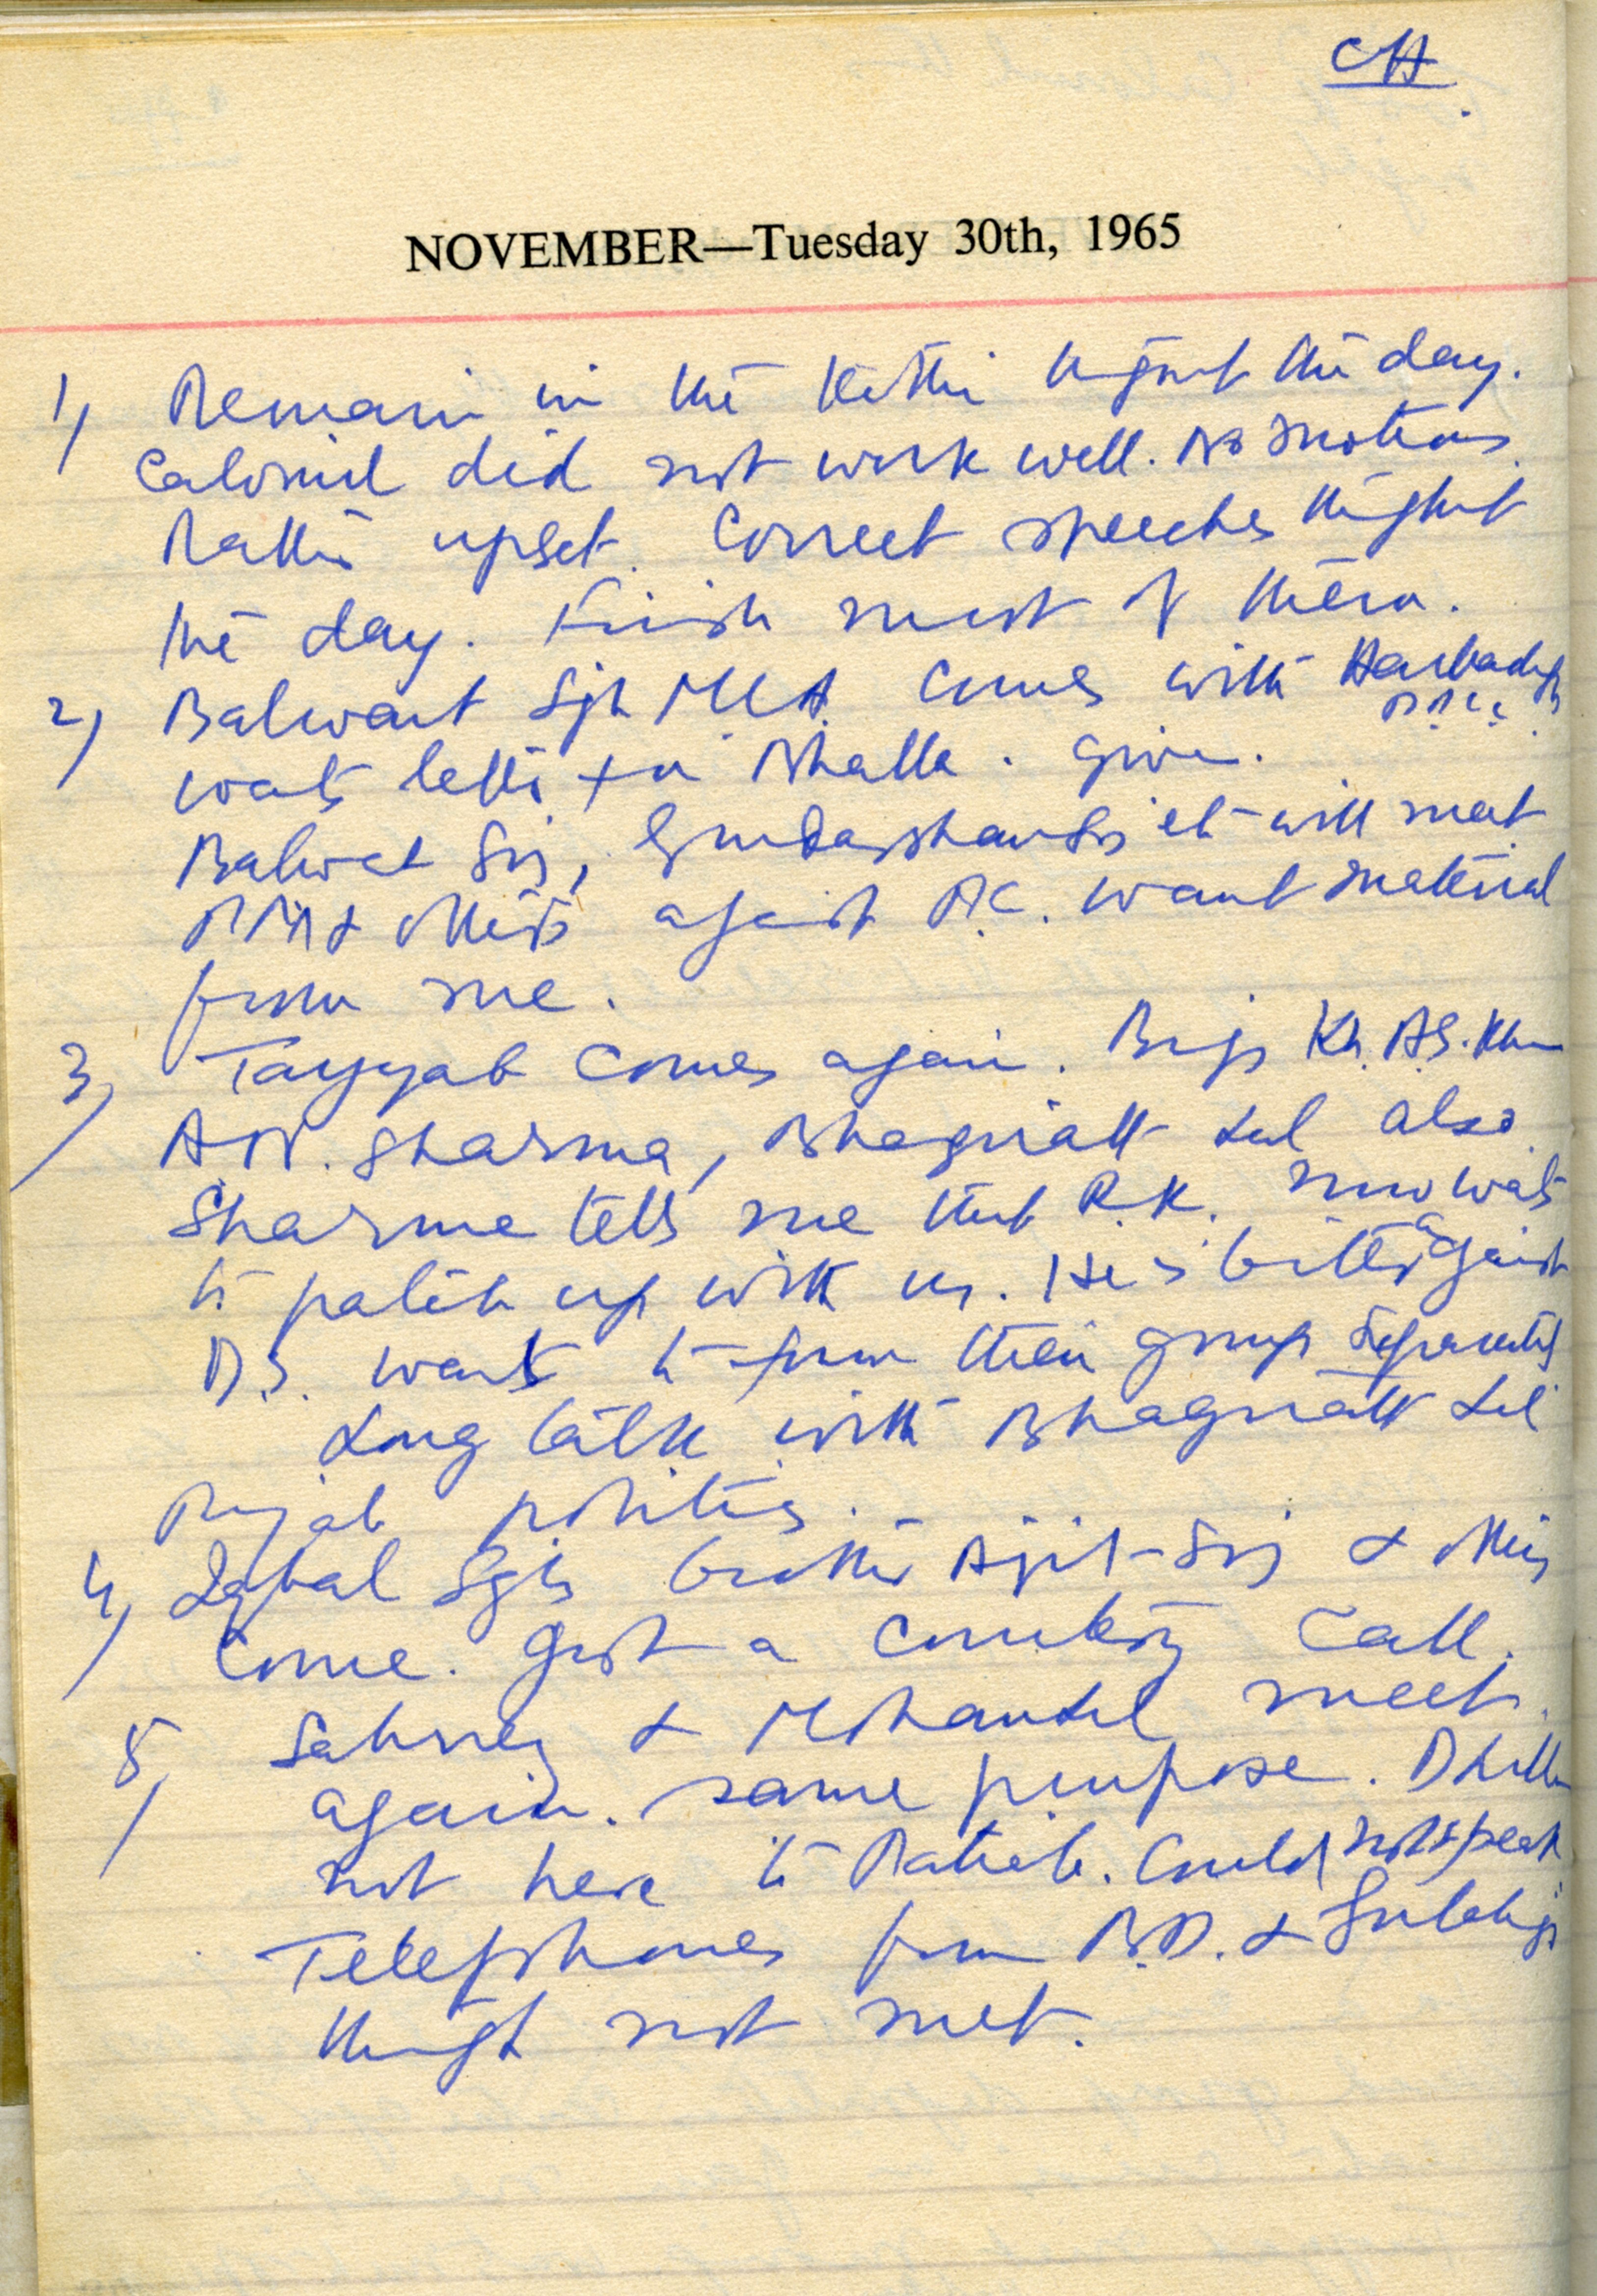 CH.
NOVEMBER—Tuesday 30th, 1965
1) Remain in the Kothi thro'out the day.
Calomel did not work well. No motions.
Rather upset. Correct speeches thro'out
the day. Finish most of them.
2) Balwant Sgh MLA. Comes with
wants letter to Bhalla. Given.
Balwant Sgj, Gurdarshan Sgj etc will meet
PM & others against P.C. want material
from me.
3) Tayyab Comes again. Brijs Kh. A.S. Khan
A.N. Sharma, Bhagirath Lal also.
Sharma tells me that R.K. now wants
to patch up with us. He is bitter against
D.S. wants to form their group separately
Long talk with Bhagirath Lal
Punjab politics.
4) Iqbal Sgh's brother Ajit Sgj & others
come. Just a courtesy call.
5) Sahney & Mohan Lal meet
again. same purpose. Dhillon
not here to Could not speak
Telephones from B.D. &
though not met.